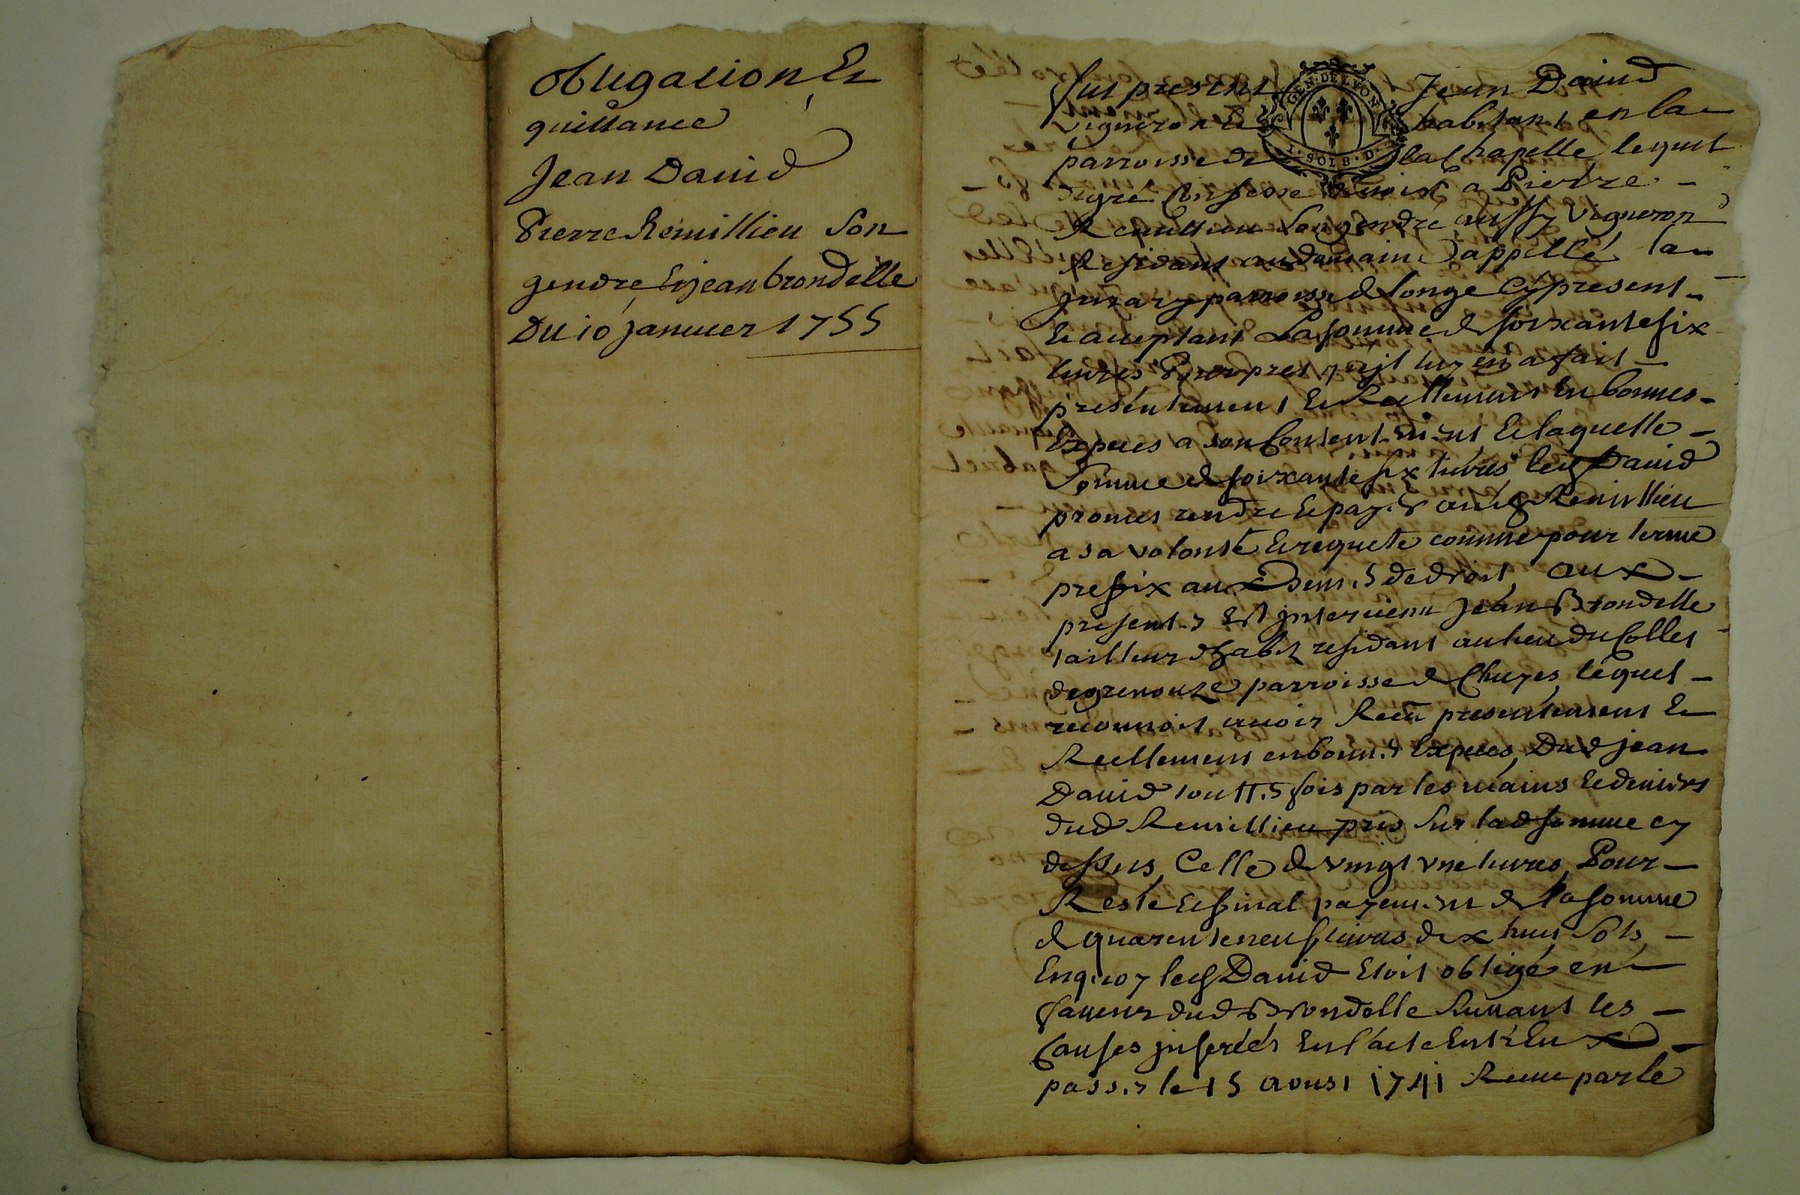 obligation Et
quittance
Jean David
Pierre Remillieu Son
gendre Et jean brondelle
Du 10 janvier 1755
fut present Jean David
vigneron habitant en la
parroisse de la Chapelle lequel
de gré Confesse devoir a Pierre
Remillieu Son gendre aussy vigneron
Residant au domaine appellé la
parroisse de longe Cy present
Et acceptant La somme de soixante six
livres Pour pret qu'il luy en a fait
présentement Et Reellement En bonnes
Especes a son Contentement Et laquelle
Somme de soixante six livres led David
promet rendre Et payer aud Remillieu
a sa volonté Et requete comme pour terme
prefix aux Deniers de droit aux
presentes Est intervenu Jean Brondelle
tailleur d'habit residant au lieu du Collet
de grenouze parroisse de Chuyes, lequel
reconnoit avoir Receu presentement Et
Reellement en bonnes Especes Dud jean
David touttefois par les mains Et deniers
dud Remillieu pris Sur lad somme cy
dessus Celle de vingt une livres Pour
Reste Et final payement de la somme
de quarente neuf livres dix huit Sols
En quoy led David Etoit obligé en
faveur dud Brondelle Suivant les
Causes inserées En l'acte Entr'Eux
passé le 15 aoust 1741 Receu par le
GEN·DE LYON